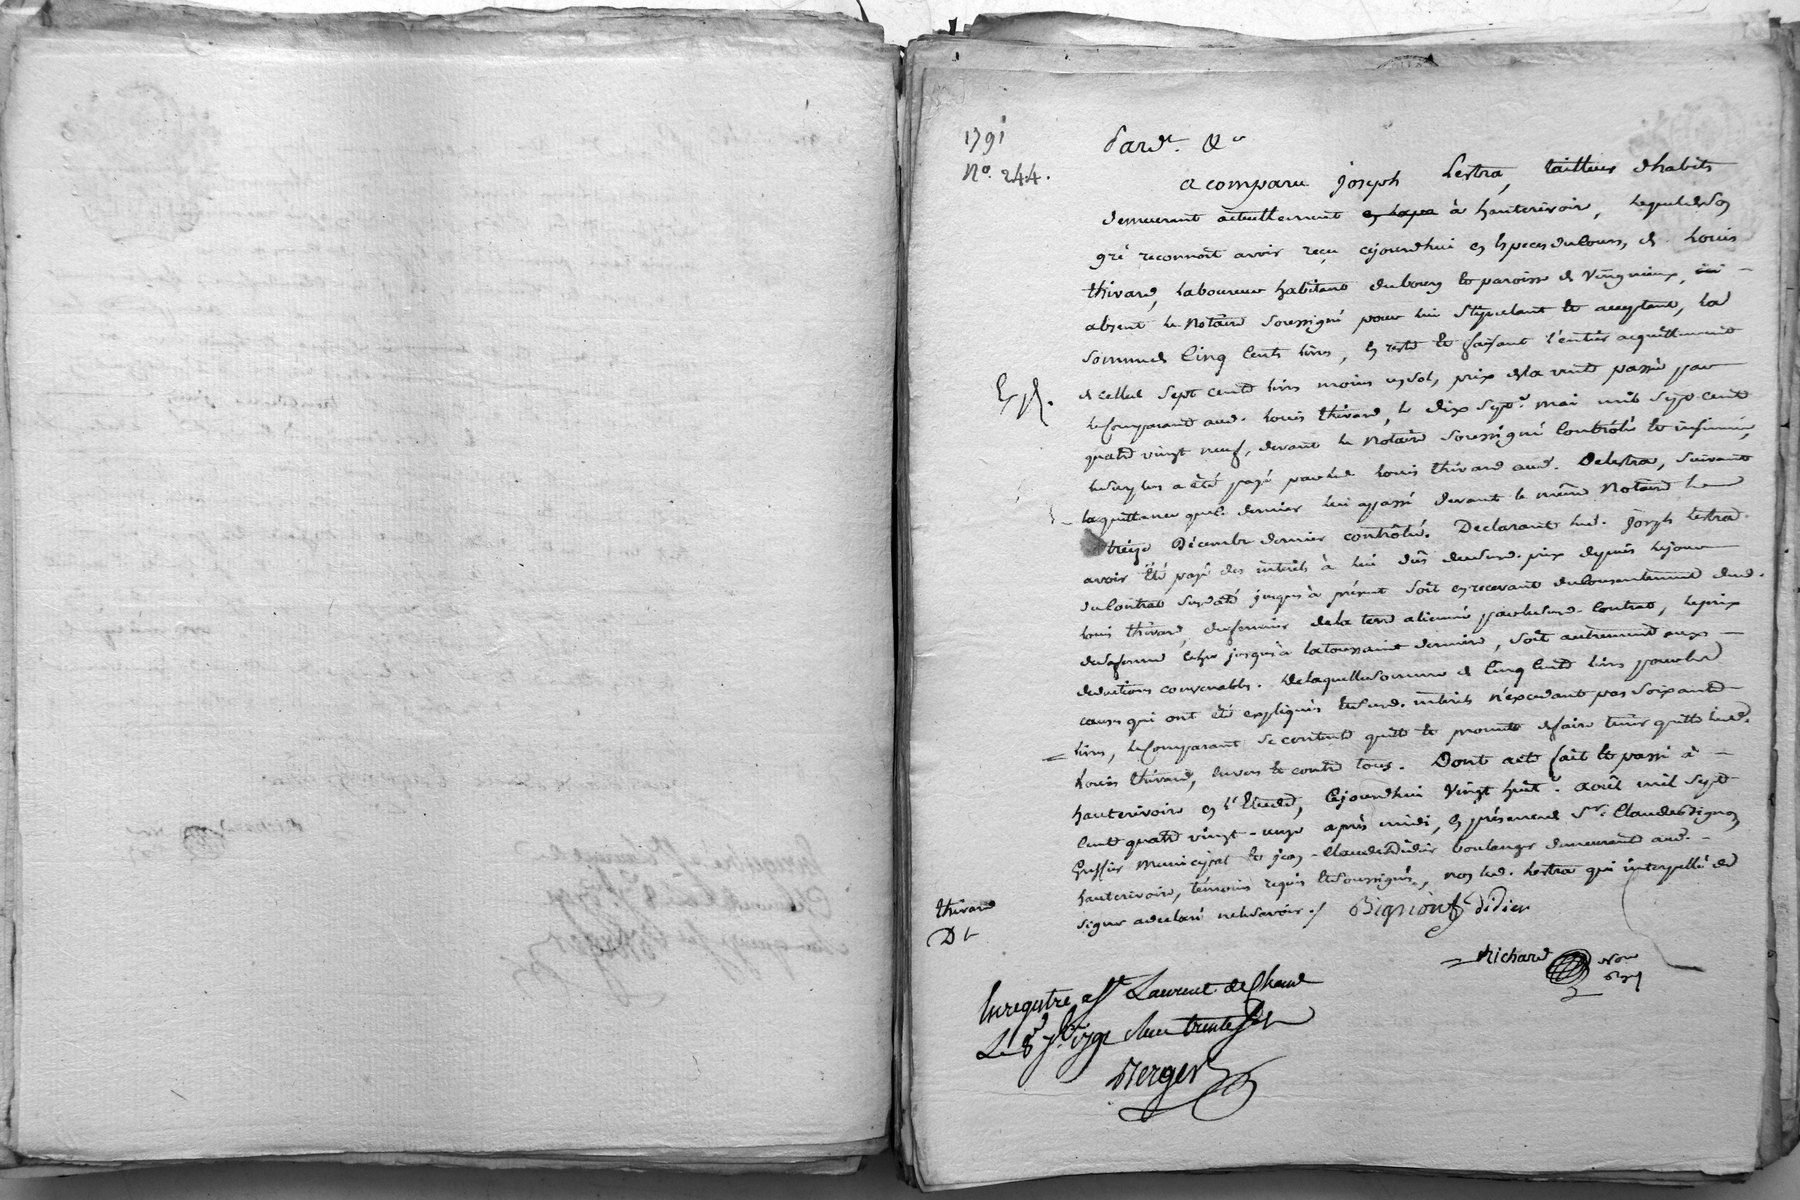 1791
No. 244.
Pard.t &c
a comparu joseph Lestra, tailleur d'habits
demeurant actuellement à hauterivoire, lequel de son
gré reconnoit avoir reçu cejourdhui en especes du cours, de Louis
thivard, laboureur habitant du bourg et paroisse de Virigneux, ici
absent le Notaire soussigné pour lui stipulant et acceptant, la
somme de Cinq Cents livres, en reste et faisant l'entier acquittement
de celle de Sept cents livres moins un sol, prix de la vente passée par
le comparant aud. Louis thivard, le dix sept mai mil sept cent
quatre vingt neuf, devant le Notaire soussigné Contrôlé et insinué,
le surplus a été payé par led. Louis thivard aud. Lestra, suivant
la quittance que ce dernier lui a passé devant le même Notaire le
treize Décembre dernier contrôlée. Declarant led. joseph Lestra
avoir été payé des interêts à lui dûs dud. prix depuis le jour
du Contrat susdaté jusques à présent soit en recevant du Consentement dud.
Louis thivard, du fermier de la terre alienée par le susd. Contrat, le prix
de sa ferme jusqu'à la toussaint derniere, soit autrement aux
deductions convenables. De laquelle somme de Cinq Cents livres pour les
causes qui ont été expliqués et susd. interêts n'excedant pas soixante
livres, le Comparant se contente quitte et promet de faire tenir quitte led.
Louis thivard, envers et contre tous. Dont acte fait et passé à
hauterivoire en l'Etude, Cejourdhui Vingt huit août mil sept
Cent quatre vingt-onze après midi, en présence de Sr. Claude Bignon
Greffier Municipal et jean-Claude Didier boulanger demeurant aud.
hauterivoire, témoins requis et soussignés, non led. Lestra qui interpellé de
signer a declaré ne le savoir ./ Bignon Gr. didier
thivard
Richard Nore
Enregistré a St Laurent de Cham
Le 8 7bre 1791 Reçu trente sols
Berger